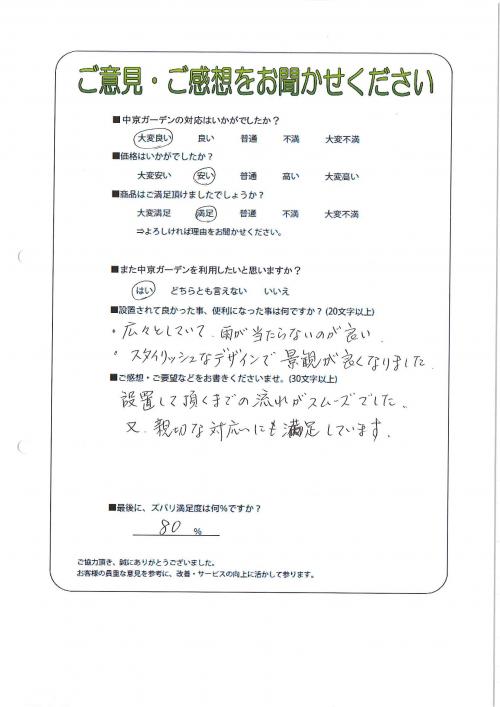 ご意見・ご感想をお聞かせください
■中京ガーデンの対応はいかがでしたか？
大変良い 良い 普通 不満 大変不満
■価格はいかがでしたか？
大変安い 安い 普通 高い 大変高い
■商品はご満足頂けましたでしょうか？
大変満足 満足 普通 不満 大変不満
⇒よろしければ理由をお聞かせください。
■また中京ガーデンを利用したいと思いますか？
はい どちらとも言えない いいえ
■設置されて良かった事、便利になった事は何ですか？（20文字以上）
・広々としていて、雨が当たらないのが良い．
・スタイリッシュなデザインで景観が良くなりました．
■ご感想・ご要望などをお書きくださいませ。（30文字以上）
設置して頂くまでの流れがスムーズでした．
又、親切な対応にも満足しています．
■最後に、ズバリ満足度は何％ですか？
80 ％
ご協力頂き、誠にありがとうございました。
お客様の貴重な意見を参考に、改善・サービスの向上に活かして参ります。